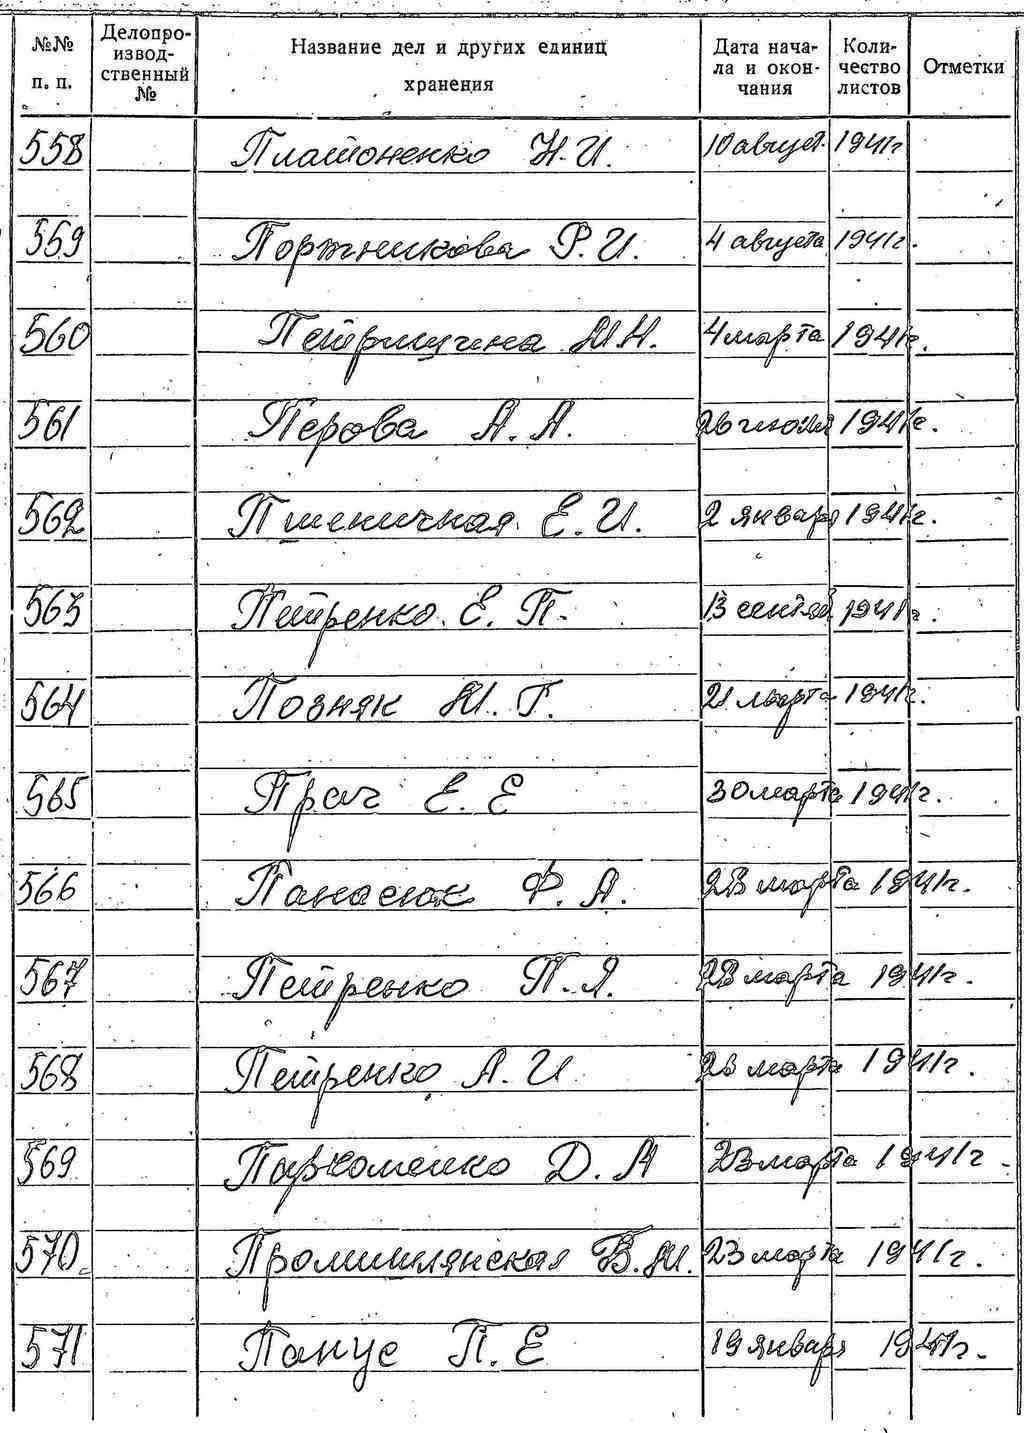 №№ п. п. Делопроизводственный № Название дел и других единиц хранения Дата начала и окончания Количество листов Отметки
558 Платоненко Н.И. 10 август. 1941г
559 Портникова Р.И. 4 августа 1941г.
560 М.Н. 4 марта 1941г.
561 Перова А.А. 26 июля 1941г.
562 Пшеничная Е.И. 2 января 1941г.
563 Петренко Е.П. 13 сентяб 1941г.
564 Позняк М.Г. 21 марта 1941г.
565 Прач Е.Е 30 марта 1941г.
566 Панасюк Ф.А. марта 1941г.
567 Петренко П.Я. марта 1941г.
568 Петренко А.И марта 1941г.
569 Пархоменко Д. 23 марта 1941г.
570 Промишлянская В.М. 23 марта 1941г.
571 Папус П.Е 19 января 1941г.